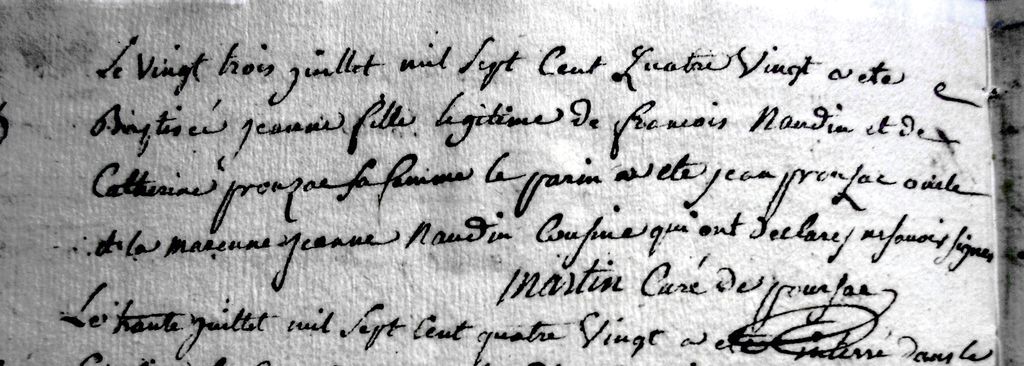 Le vingt trois juillet mil sept Cent Quatre vingt a ete
Baptiseé jeanne fille legitime de francois Naudin et de
Catherine prouzac sa femme le parin a ete jean prouzac oncle
et la marenne jeanne Naudin Cousine qui ont declarez ne savoir signer
Martin Curé de
Le trante juillet mil sept Cent quatre vingt a ete interré dans le